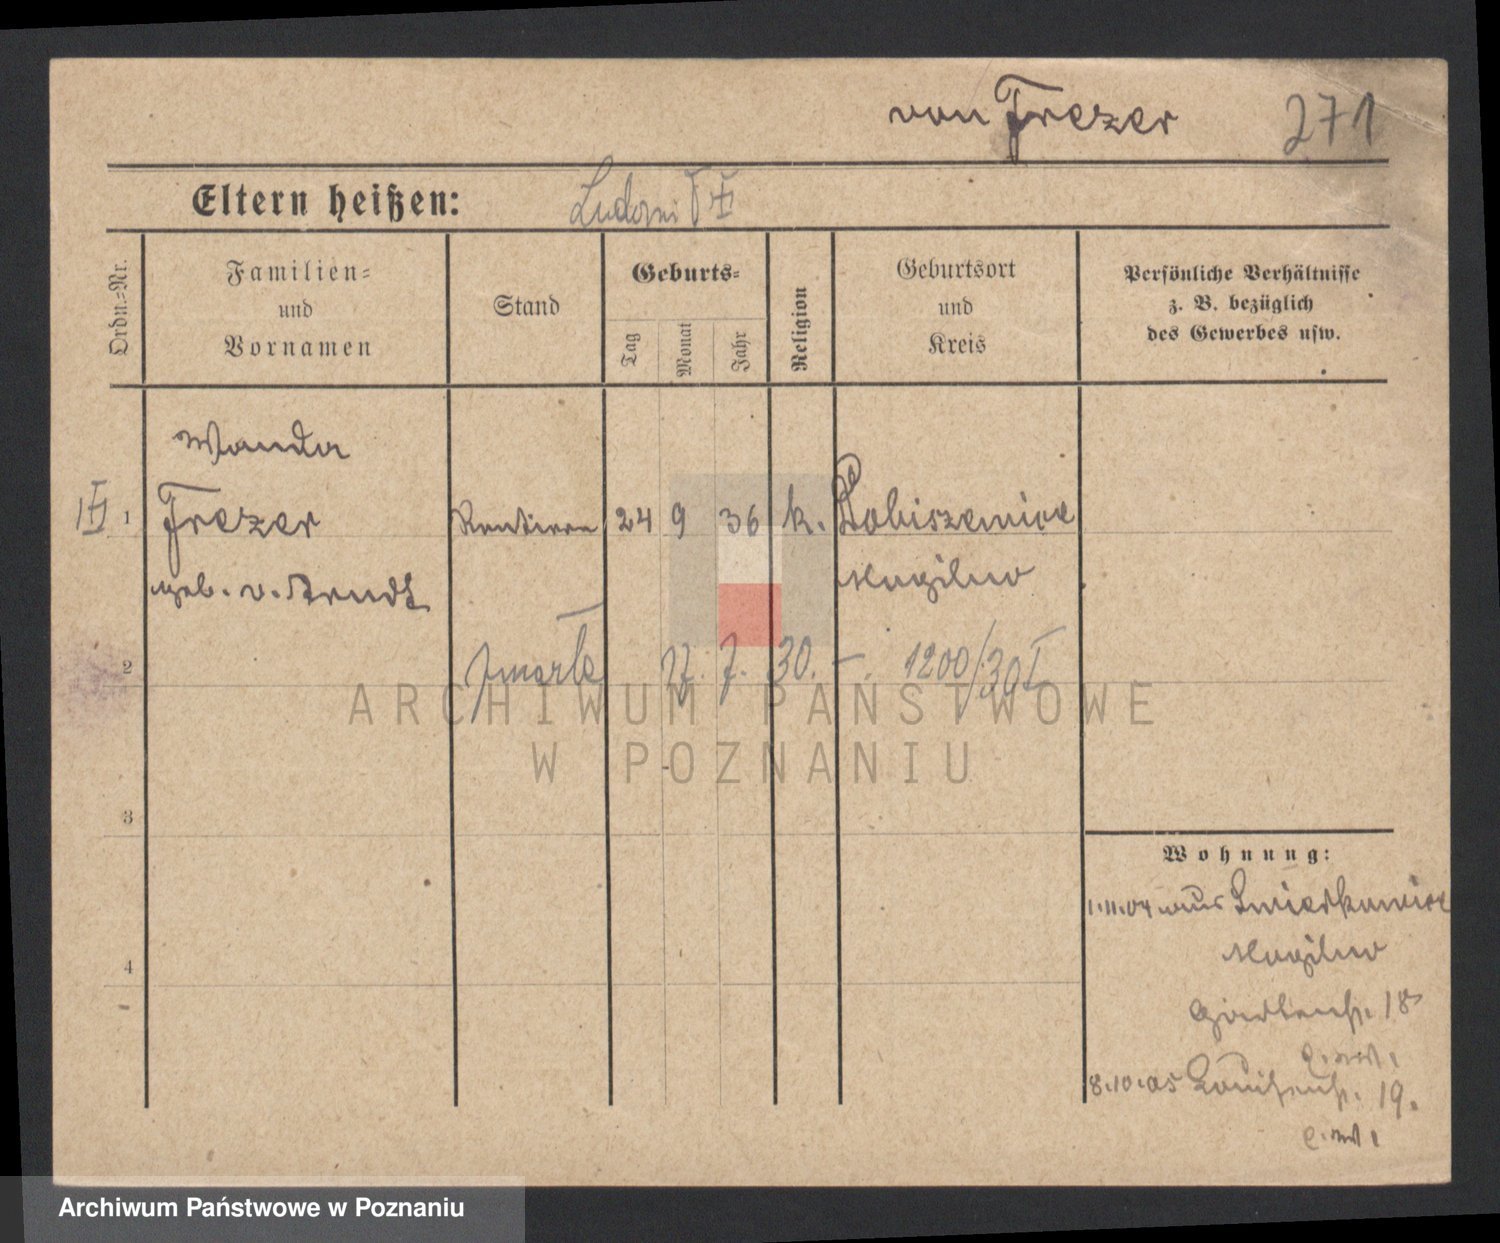 von Frezer 271
Eltern heißen:
Ordn.-Nr.
Familien- und Vornamen
Stand
Geburts-
Tag
Monat
Jahr
Religion
Geburtsort und Kreis
Persönliche Verhältnisse
z. B. bezüglich
des Gewerbes usw.
Wanda
1 Frezer 24 9 36 k. Dobiszewice
geb. v. Arndt Mogilno
2 zmarła 17. 7. 30. – 1200/30 I
ARCHIWUM PAŃSTWOWE
W POZNANIU
3
Wohnung:
1.11.04 aus
Mogilno
4
Gartenstr. 18
8.10.05 Louisenstr. 19.
Archiwum Państwowe w Poznaniu